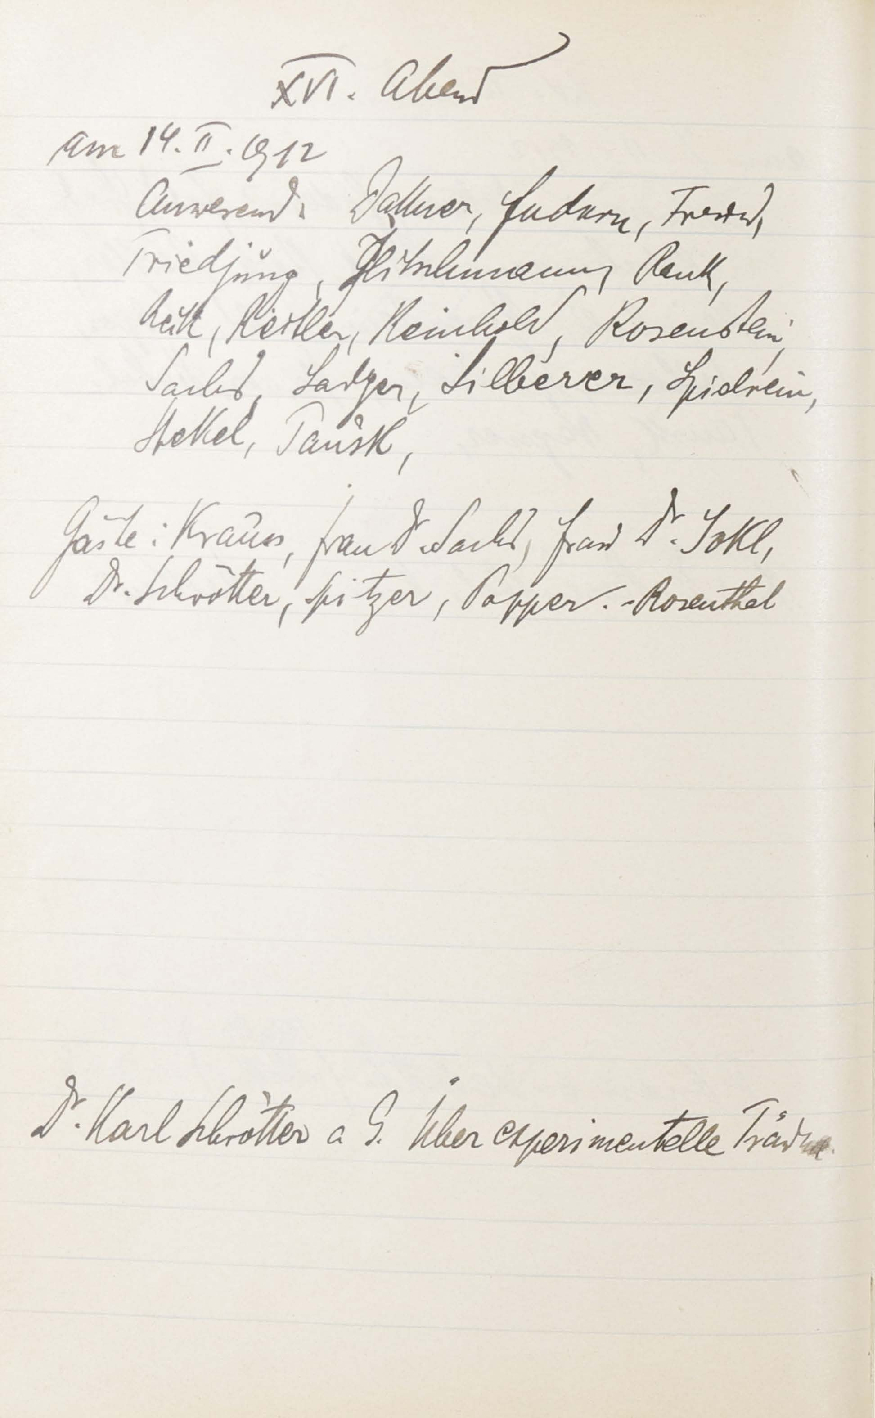 XVI. Abend
am 14. II. 1912
Anwesend: Dattner, Federn, Freud,
Friedjung, Hitschmann, Rank,
Reik, Reitler, Reinhold, Rosenstein,
Sachs, Sadger, Silberer, Spielrein,
Stekel, Tausk,
Gäste: Kraus, Frau Dr. Sachs, Frau Dr. Jokl,
Dr. Schrötter, Spitzer, Popper. - Rosenthal
Dr. Karl Schrötter a G. Über experimentelle Träume.